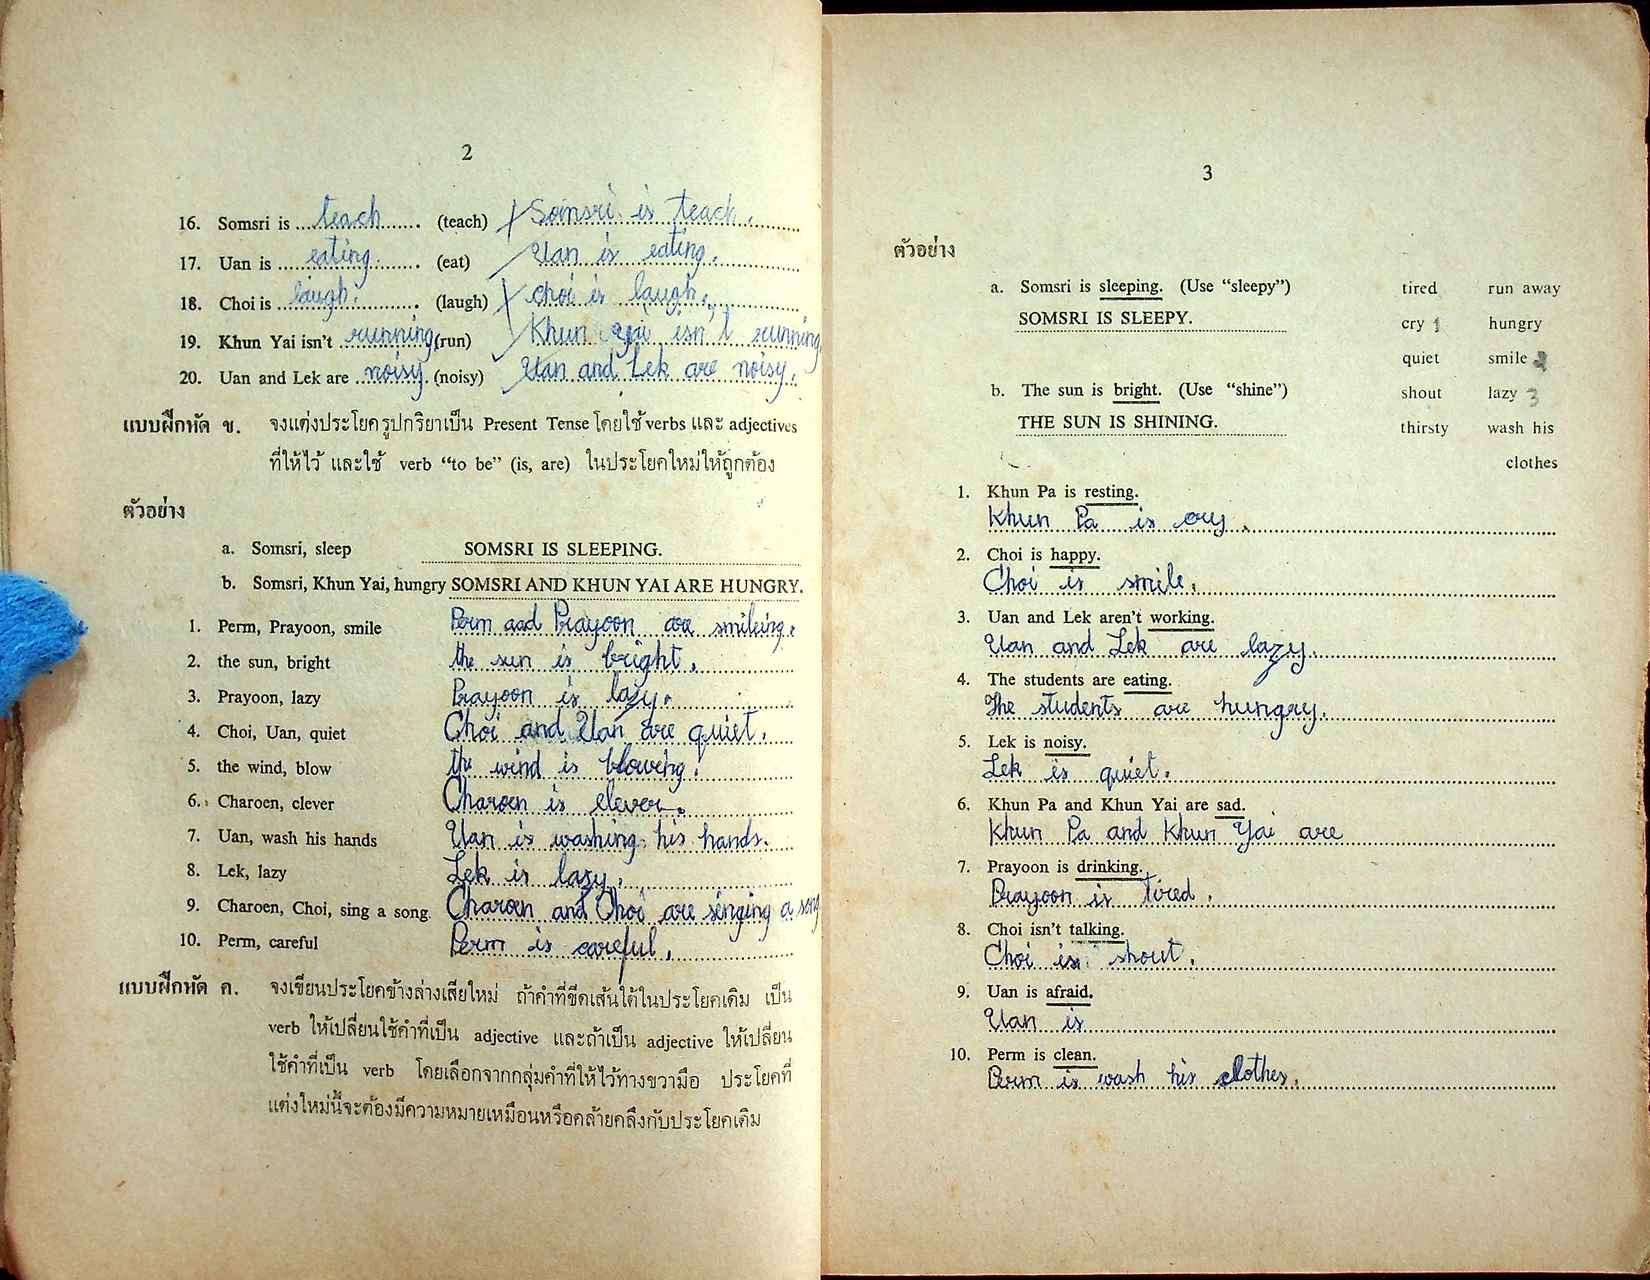 2
16. Somsri is ...teach....... (teach) Somsri is teach.
17. Uan is .....eating........ (eat) Uan is eating.
18. Choi is ..laugh........... (laugh) choi is laugh.
19. Khun Yai isn't ..running.(run) Khun Yai isn't running
20. Uan and Lek are ..noisy.. (noisy) Uan and Lek are noisy.
แบบฝึกหัด ข. จงแต่งประโยครูปกริยาเป็น Present Tense โดยใช้ verbs และ adjectives
ที่ให้ไว้ และใช้ verb “to be” (is, are) ในประโยคใหม่ให้ถูกต้อง
ตัวอย่าง
a. Somsri, sleep SOMSRI IS SLEEPING.
b. Somsri, Khun Yai, hungry SOMSRI AND KHUN YAI ARE HUNGRY.
1. Perm, Prayoon, smile Perm and Prayoon are smileing.
2. the sun, bright the sun is bright.
3. Prayoon, lazy Prayoon is lazy.
4. Choi, Uan, quiet Choi and Uan are quiet.
5. the wind, blow the wind is blowing.
6. Charoen, clever Charoen is clever.
7. Uan, wash his hands Uan is washing his hands.
8. Lek, lazy Lek is lazy.
9. Charoen, Choi, sing a song. Charoen and Choi are singing a song
10. Perm, careful Perm is careful.
แบบฝึกหัด ค. จงเขียนประโยคข้างล่างเสียใหม่ ถ้าคำที่ขีดเส้นใต้ในประโยคเดิม เป็น
verb ให้เปลี่ยนใช้คำที่เป็น adjective และถ้าเป็น adjective ให้เปลี่ยน
ใช้คำที่เป็น verb โดยเลือกจากกลุ่มคำที่ให้ไว้ทางขวามือ ประโยคที่
แต่งใหม่นี้จะต้องมีความหมายเหมือนหรือคล้ายคลึงกับประโยคเดิม
3
ตัวอย่าง
a. Somsri is sleeping. (Use “sleepy”) tired run away
SOMSRI IS SLEEPY. cry 1 hungry
quiet smile 2
b. The sun is bright. (Use “shine”) shout lazy 3
THE SUN IS SHINING. thirsty wash his
clothes
1. Khun Pa is resting.
Khun Pa is cry.
2. Choi is happy.
Choi is smile.
3. Uan and Lek aren't working.
Uan and Lek are lazy.
4. The students are eating.
The students are hungry.
5. Lek is noisy.
Lek is quiet.
6. Khun Pa and Khun Yai are sad.
Khun Pa and Khun Yai are
7. Prayoon is drinking.
Prayoon is tired.
8. Choi isn't talking.
Choi is shout.
9. Uan is afraid.
Uan is
10. Perm is clean.
Perm is wash his clothes.